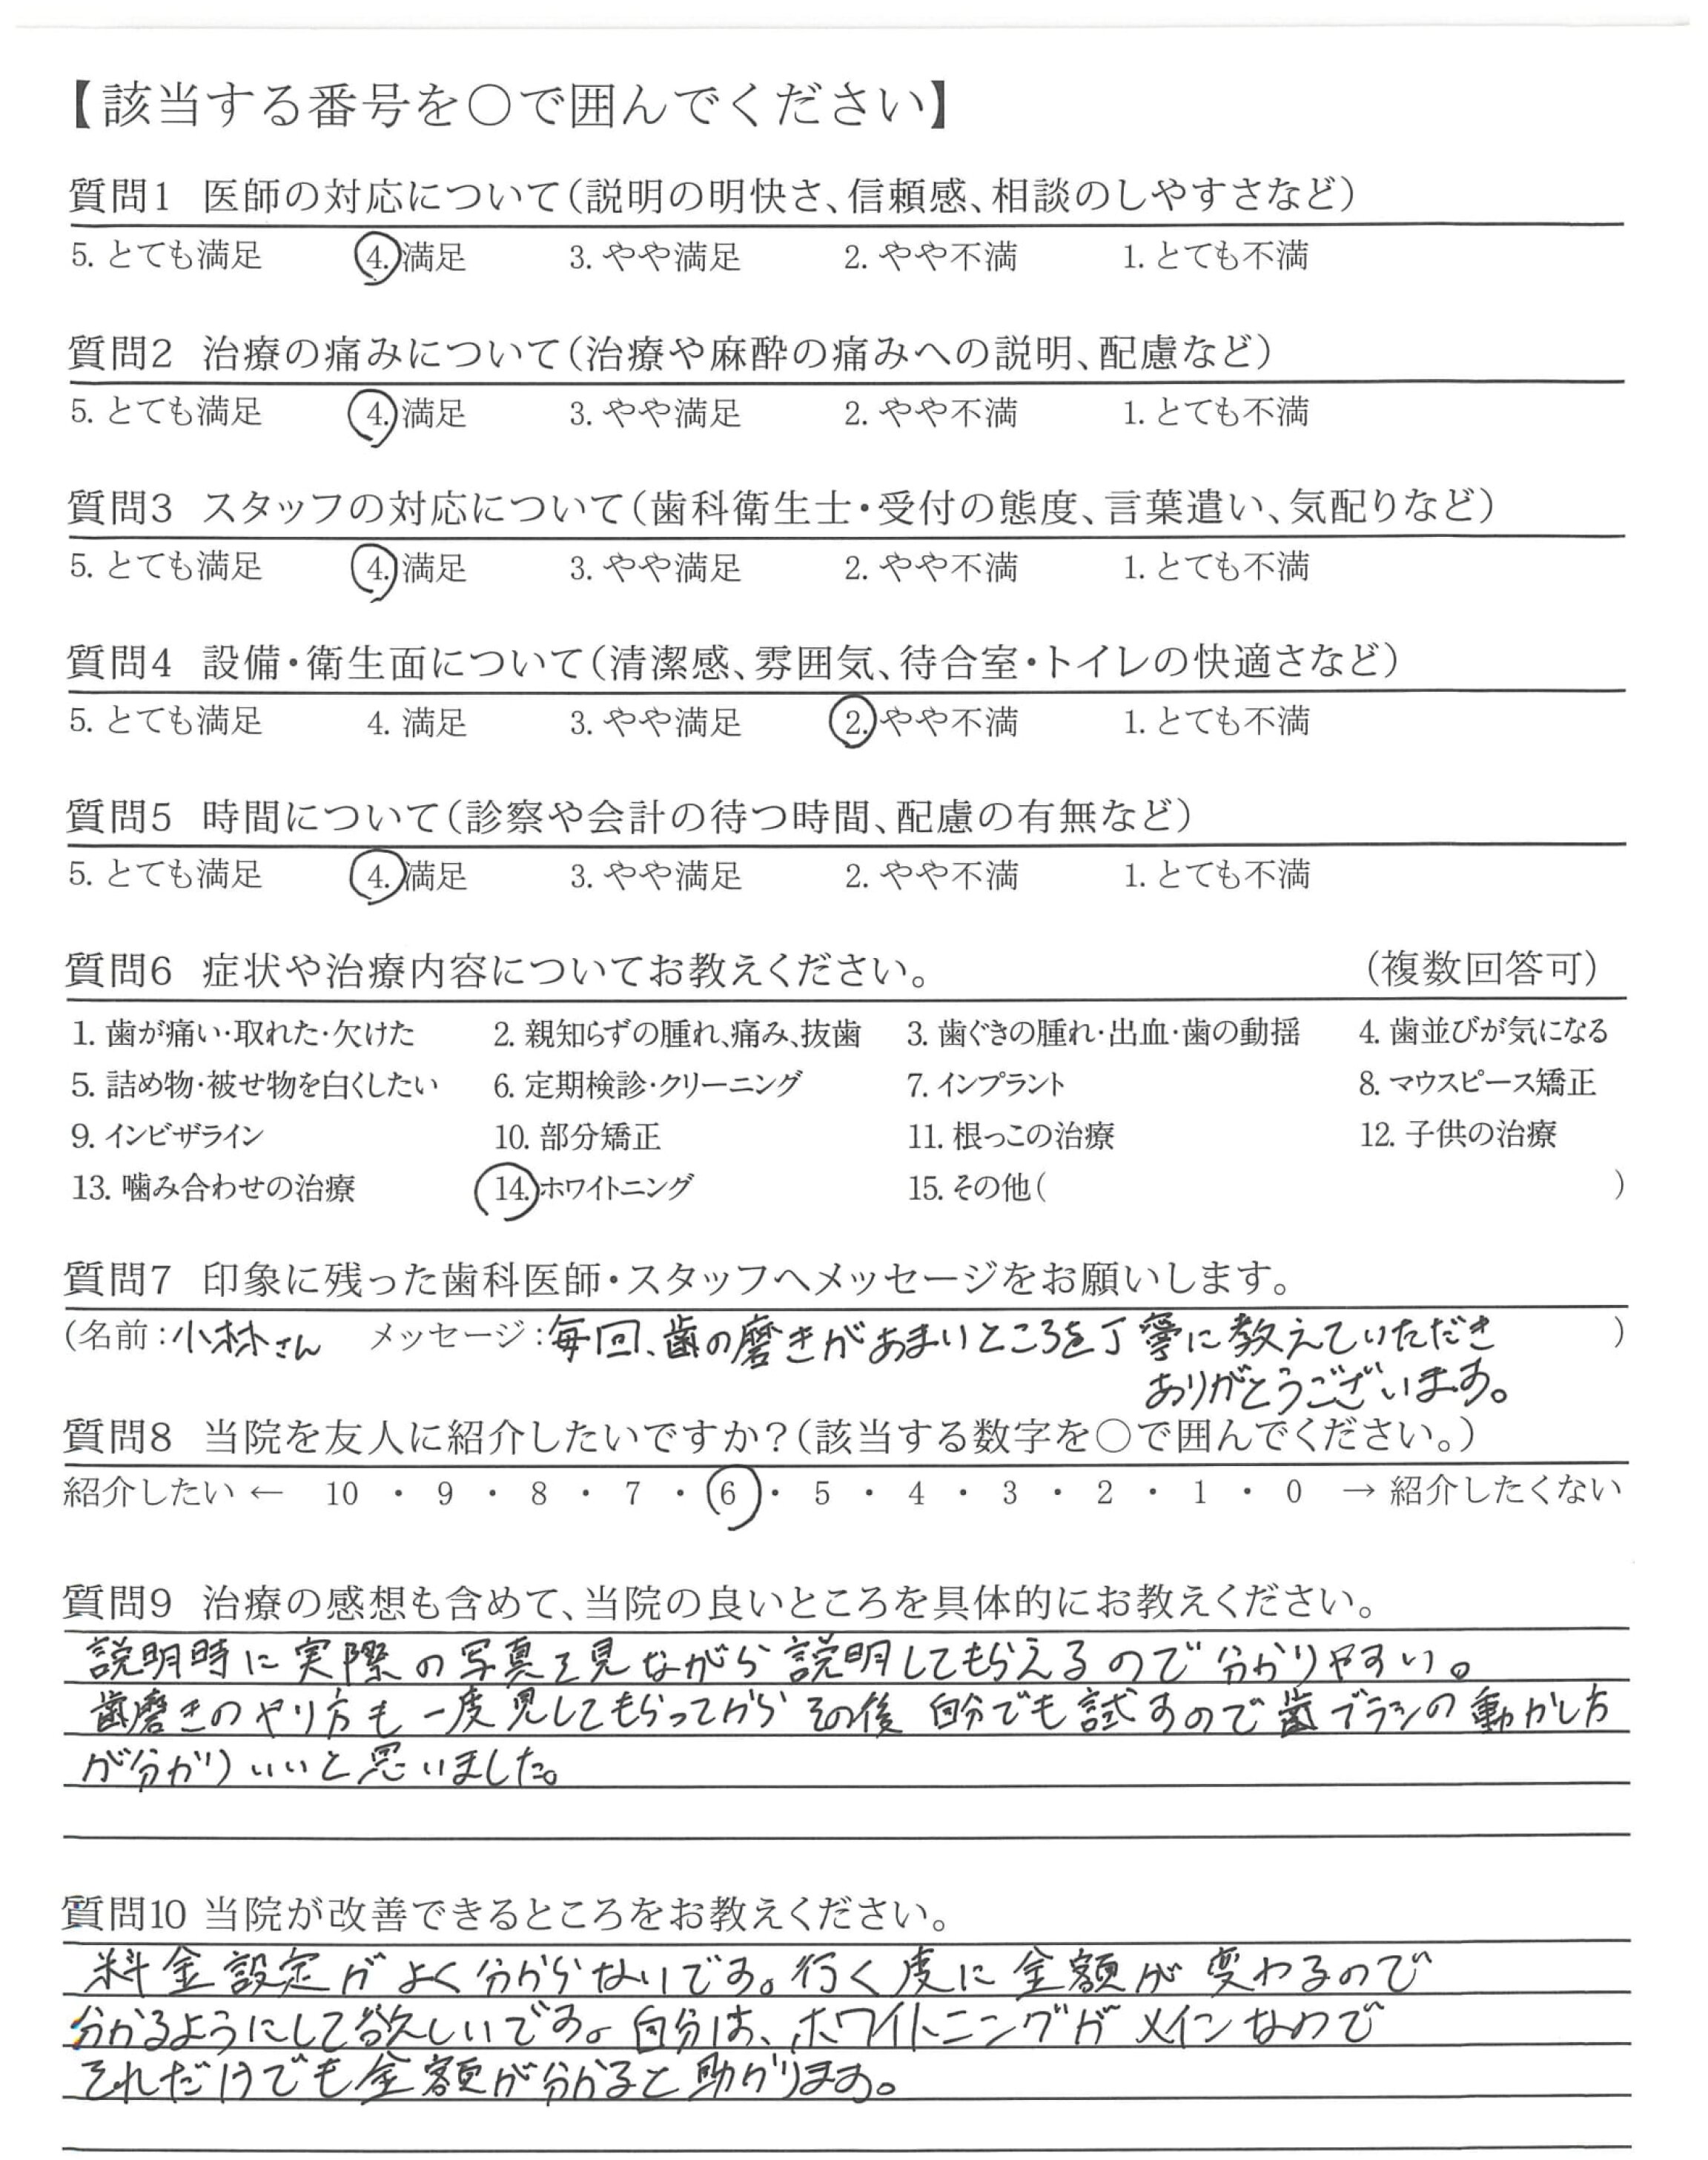 【該当する番号を〇で囲んでください】
質問1 医師の対応について(説明の明快さ、信頼感、相談のしやすさなど)
5. とても満足 4. 満足 3. やや満足 2. やや不満 1. とても不満
質問2 治療の痛みについて(治療や麻酔の痛みへの説明、配慮など)
5. とても満足 4. 満足 3. やや満足 2. やや不満 1. とても不満
質問3 スタッフの対応について(歯科衛生士・受付の態度、言葉遣い、気配りなど)
5. とても満足 4. 満足 3. やや満足 2. やや不満 1. とても不満
質問4 設備・衛生面について(清潔感、雰囲気、待合室・トイレの快適さなど)
5. とても満足 4. 満足 3. やや満足 2. やや不満 1. とても不満
質問5 時間について(診察や会計の待つ時間、配慮の有無など)
5. とても満足 4. 満足 3. やや満足 2. やや不満 1. とても不満
質問6 症状や治療内容についてお教えください。 (複数回答可)
1. 歯が痛い・取れた・欠けた 2. 親知らずの腫れ、痛み、抜歯 3. 歯ぐきの腫れ・出血・歯の動揺 4. 歯並びが気になる
5. 詰め物・被せ物を白くしたい 6. 定期検診・クリーニング 7. インプラント 8. マウスピース矯正
9. インビザライン 10. 部分矯正 11. 根っこの治療 12. 子供の治療
13. 噛み合わせの治療 14. ホワイトニング 15. その他( )
質問7 印象に残った歯科医師・スタッフへメッセージをお願いします。
(名前:小林さん メッセージ:毎回、歯の磨きがあまいところを丁寧に教えていただき )
ありがとうございます。
質問8 当院を友人に紹介したいですか?(該当する数字を〇で囲んでください。)
紹介したい ← 10 ・ 9 ・ 8 ・ 7 ・ 6 ・ 5 ・ 4 ・ 3 ・ 2 ・ 1 ・ 0 → 紹介したくない
質問9 治療の感想も含めて、当院の良いところを具体的にお教えください。
説明時に実際の写真を見ながら説明してもらえるので分かりやすい。
歯磨きのやり方も一度見してもらってからその後自分でも試すので歯ブラシの動かし方
が分かりいいと思いました。
質問10 当院が改善できるところをお教えください。
料金設定がよく分からないです。行く度に金額が変わるので
分かるようにして欲しいです。自分は、ホワイトニングがメインなので
それだけでも金額が分かると助かります。